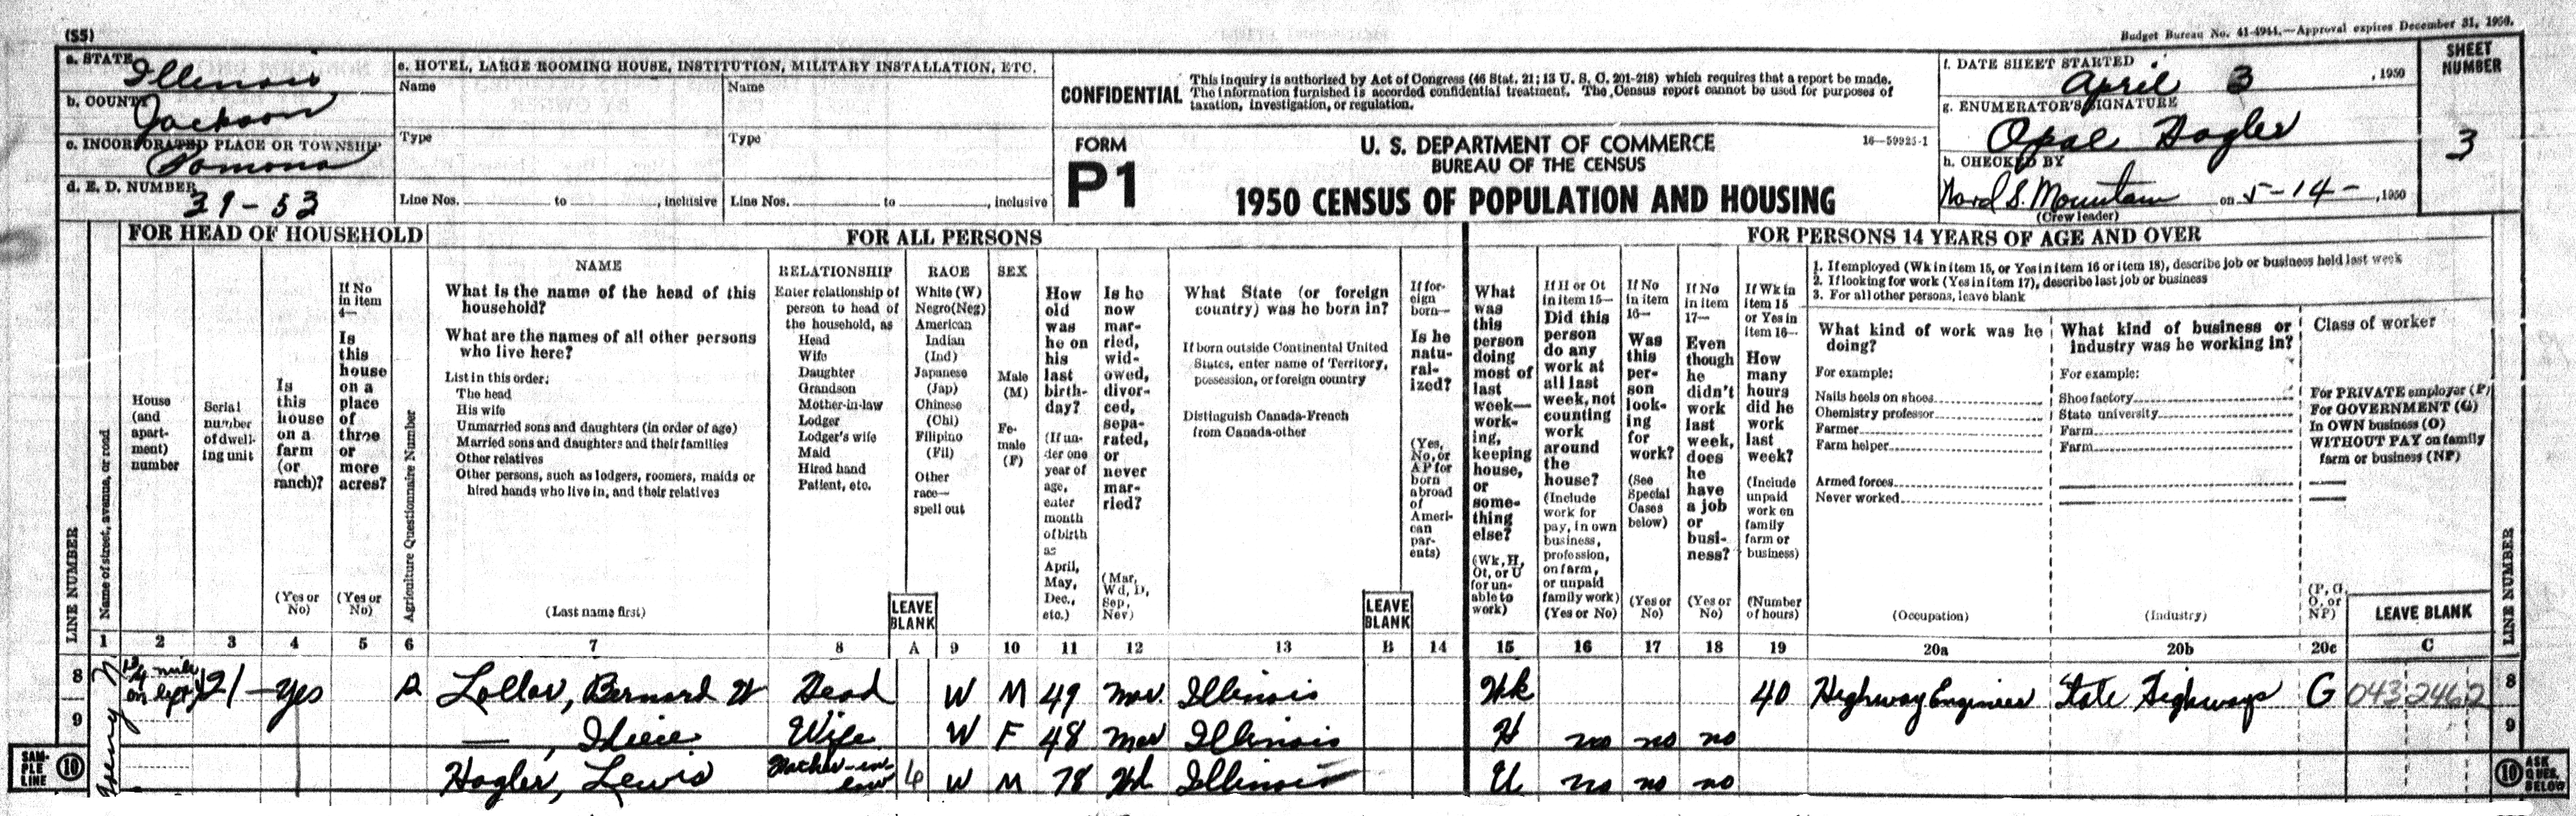 (S5)
Budget Bureau No. 41-4944.—Approval expires December 31, 1950.
a. STATE Illinois
b. COUNTY Jackson
c. INCORPORATED PLACE OR TOWNSHIP Pomona
d. E. D. NUMBER 39-53
e. HOTEL, LARGE ROOMING HOUSE, INSTITUTION, MILITARY INSTALLATION, ETC.
Name Name
Type Type
Line Nos. to , inclusive Line Nos. to , inclusive
CONFIDENTIAL
This inquiry is authorized by Act of Congress (46 Stat. 21; 13 U. S. C. 201-218) which requires that a report be made.
The information furnished is accorded confidential treatment. The Census report cannot be used for purposes of
taxation, investigation, or regulation.
FORM
P1
U. S. DEPARTMENT OF COMMERCE
BUREAU OF THE CENSUS
1950 CENSUS OF POPULATION AND HOUSING
16—59925-1
f. DATE SHEET STARTED
April 3, 1950
g. ENUMERATOR'S SIGNATURE
Opal Hagler
h. CHECKED BY
S. Mountain on 5-14-, 1950
(Crew leader)
SHEET
NUMBER
3
FOR HEAD OF HOUSEHOLD
FOR ALL PERSONS
FOR PERSONS 14 YEARS OF AGE AND OVER
LINE NUMBER
Name of street, avenue, or road
House
(and
apart-
ment)
number
Serial
number
of dwell-
ing unit
Is
this
house
on a
farm
(or
ranch)?
(Yes or
No)
If No
in item
4—
Is
this
house
on a
place
of
three
or
more
acres?
(Yes or
No)
Agriculture Questionnaire Number
NAME
What is the name of the head of this
household?
What are the names of all other persons
who live here?
List in this order:
The head
His wife
Unmarried sons and daughters (in order of age)
Married sons and daughters and their families
Other relatives
Other persons, such as lodgers, roomers, maids or
hired hands who live in, and their relatives
(Last name first)
RELATIONSHIP
Enter relationship of
person to head of
the household, as
Head
Wife
Daughter
Grandson
Mother-in-law
Lodger
Lodger's wife
Maid
Hired hand
Patient, etc.
LEAVE
BLANK
RACE
White (W)
Negro(Neg)
American
Indian
(Ind)
Japanese
(Jap)
Chinese
(Chi)
Filipino
(Fil)
Other
race—
spell out
SEX
Male
(M)
Fe-
male
(F)
How
old
was
he on
his
last
birth-
day?
(If un-
der one
year of
age,
enter
month
of birth
as
April,
May,
Dec.,
etc.)
Is he
now
mar-
ried,
wid-
owed,
divor-
ced,
sepa-
rated,
or
never
mar-
ried?
(Mar,
Wd, D,
Sep,
Nev)
What State (or foreign
country) was he born in?
If born outside Continental United
States, enter name of Territory,
possession, or foreign country
Distinguish Canada-French
from Canada-other
LEAVE
BLANK
If for-
eign
born—
Is he
natu-
ral-
ized?
(Yes,
No, or
AP for
born
abroad
of
Ameri-
can
par-
ents)
What
was
this
person
doing
most of
last
week—
work-
ing,
keeping
house,
or
some-
thing
else?
(Wk, H,
Ot, or U
for un-
able to
work)
If H or Ot
in item 15—
Did this
person
do any
work at
all last
week, not
counting
work
around
the
house?
(Include
work for
pay, in own
business,
profession,
on farm,
or unpaid
family work)
(Yes or No)
If No
in item
16—
Was
this
per-
son
look-
ing
for
work?
(See
Special
Cases
below)
(Yes or
No)
If No
in item
17—
Even
though
he
didn't
work
last
week,
does
he
have
a job
or
busi-
ness?
(Yes or
No)
If Wk in
item 15
or Yes in
item 16—
How
many
hours
did he
work
last
week?
(Include
unpaid
work on
family
farm or
business)
(Number
of hours)
1. If employed (Wk in item 15, or Yes in item 16 or item 18), describe job or business held last week
2. If looking for work (Yes in item 17), describe last job or business
3. For all other persons, leave blank
What kind of work was he
doing?
For example:
Nails heels on shoes
Chemistry professor
Farmer
Farm helper
Armed forces
Never worked
(Occupation)
What kind of business or
industry was he working in?
For example:
Shoe factory
State university
Farm
Farm
(Industry)
Class of worker
For PRIVATE employer (P)
For GOVERNMENT (G)
In OWN business (O)
WITHOUT PAY on family
farm or business (NP)
(P, G,
O, or
NP)
LEAVE BLANK
LINE NUMBER
1 2 3 4 5 6 7 8 A 9 10 11 12 13 B 14 15 16 17 18 19 20a 20b 20c C
8 mile on left 21 — Yes Lollar, Bernard W Head W M 49 Mar. Illinois Wk 40 Highway Engineer State Highways G 043 246 2 8
9 — , Wife W F 48 Mar Illinois H no no no 9
SAM-
PLE
LINE
10 Hagler, Lewis Father-in-law 4 W M 78 Wd Illinois U no no no 10
ASK
QUES.
BELOW